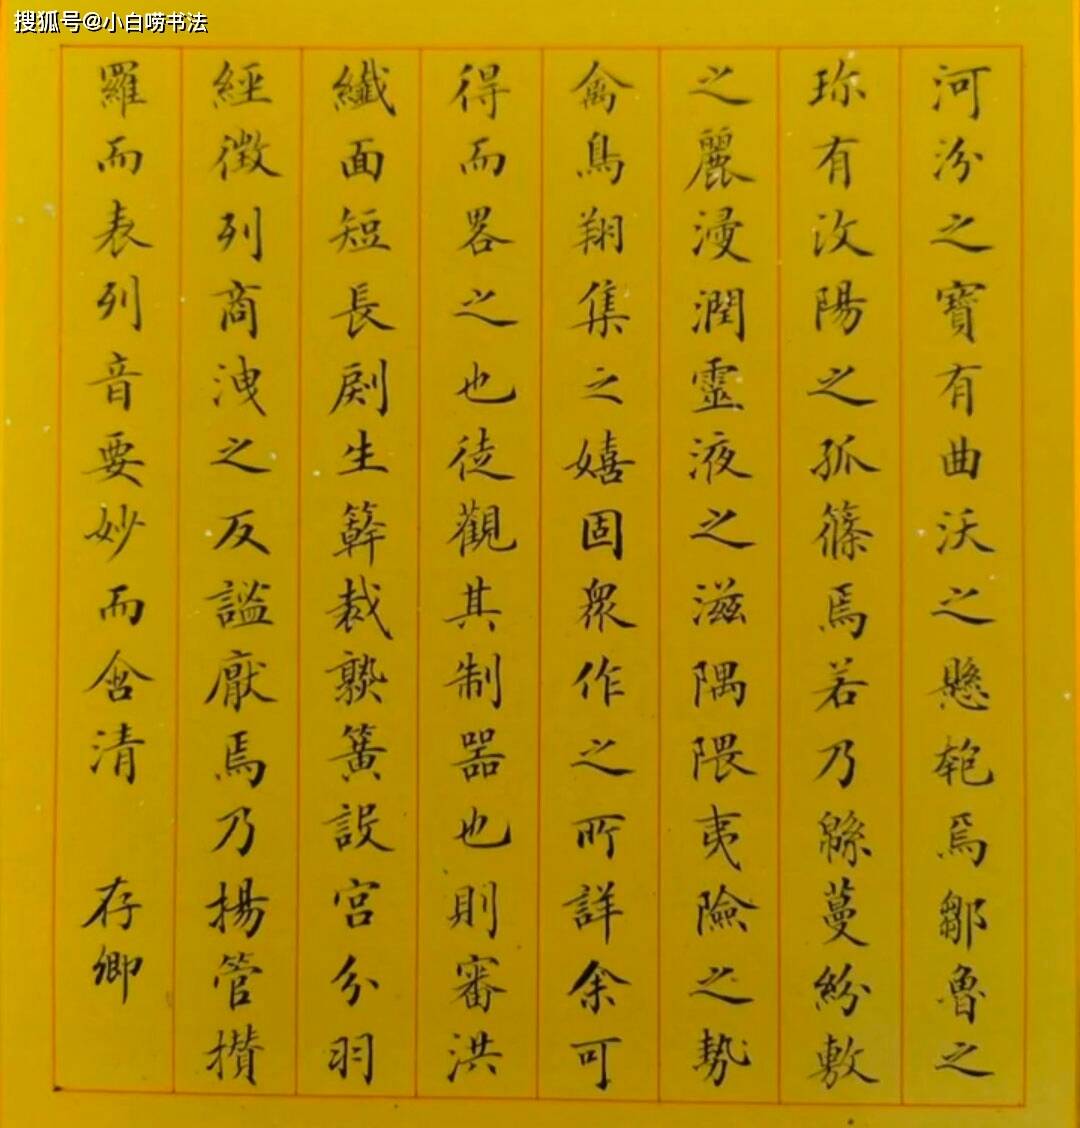 搜狐号@小白唠书法
河汾之寶有曲沃之懸匏焉鄒魯之
珎有汶陽之孤篠焉若乃緜蔓紛敷
之麗浸潤靈液之滋隅隈夷險之勢
禽鳥翔集之嬉固衆作之所詳余可
得而畧之也徒觀其制器也則審洪
纖面短長剧生簳裁熟簧設宮分羽
經徵列商洩之反謐厭焉乃揚管攅
羅而表列音要妙而含清
存卿